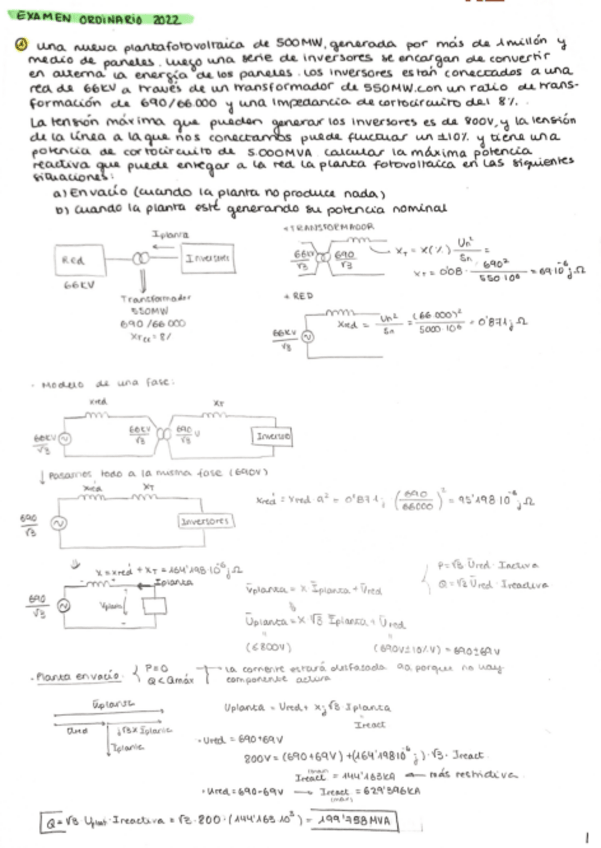 EXAMEN ORDINARIO 2022
① una nueva planta fotovoltaica de 500MW, generada por más de 1 millón y
medio de paneles. luego una serie de inversores se encargan de convertir
en alterna la energía de los paneles. los inversores están conectados a una
red de 66KV a través de un transformador de 550MW con un ratio de trans-
formación de 690/66.000 y una impedancia de cortocircuito del 8%.
La tensión máxima que pueden generar los inversores es de 800V, y la tensión
de la línea a la que nos conectamos puede fluctuar un ±10% y tiene una
potencia de cortocircuito de 5.000MVA calcular la máxima potencia
reactiva que puede entregar a la red la planta fotovoltaica en las siguientes
situaciones:
a) En vacío (cuando la planta no produce nada)
b) cuando la planta esté generando su potencia nominal
Iplanta
Red
Inversores
66KV
Transformador
550MW
690/66 000
Xτcc = 8%
+ TRANSFORMADOR
66KV/√3 690/√3
Xτ = X(%) Un²/Sn =
Xτ = 0'08 · 690²/550·10⁶ = 69·10⁻⁶ j Ω
+ RED
66KV/√3
Xred = Un²/Sn = (66.000)²/5000·10⁶ = 0'871 j Ω
· Modelo de una fase:
Xred Xτ
66KV/√3 66KV/√3 690/√3 V Inversor
↓ Pasamos todo a la misma fase (690V)
Xred' Xτ
690/√3 Inversores
Xred' = Xred · a² = 0'871 j (690/66000)² = 95'198·10⁻⁶ j Ω
X = Xred' + Xτ = 164'198·10⁻⁶ j Ω
Iplanta
690/√3 Vplanta
Vplanta = X Iplanta + Vred
Uplanta = X √3 Iplanta + Ured
(≤800V) (690V±10%V) = 690±69V
P = √3 Ured · Iactiva
Q = √3 Ured · Ireactiva
· Planta en vacío: P=0
Q<Qmáx
la corriente estará desfasada 90 porque no hay
componente activa
Uplanta
Ured j√3X Iplanta
Iplanta
Uplanta = Ured + X j √3 Iplanta
Ireact
· Ured = 690+69V
800V = (690+69V) + (164'198·10⁻⁶ j) · √3 · Ireact
Ireact = 144'163kA ← más restrictiva
(max)
· Ured = 690-69V → Ireact = 629'396KA
(max)
Q = √3 Uplant · Ireactiva = √3 · 800 · (144'163·10³) = 199'758MVA
1